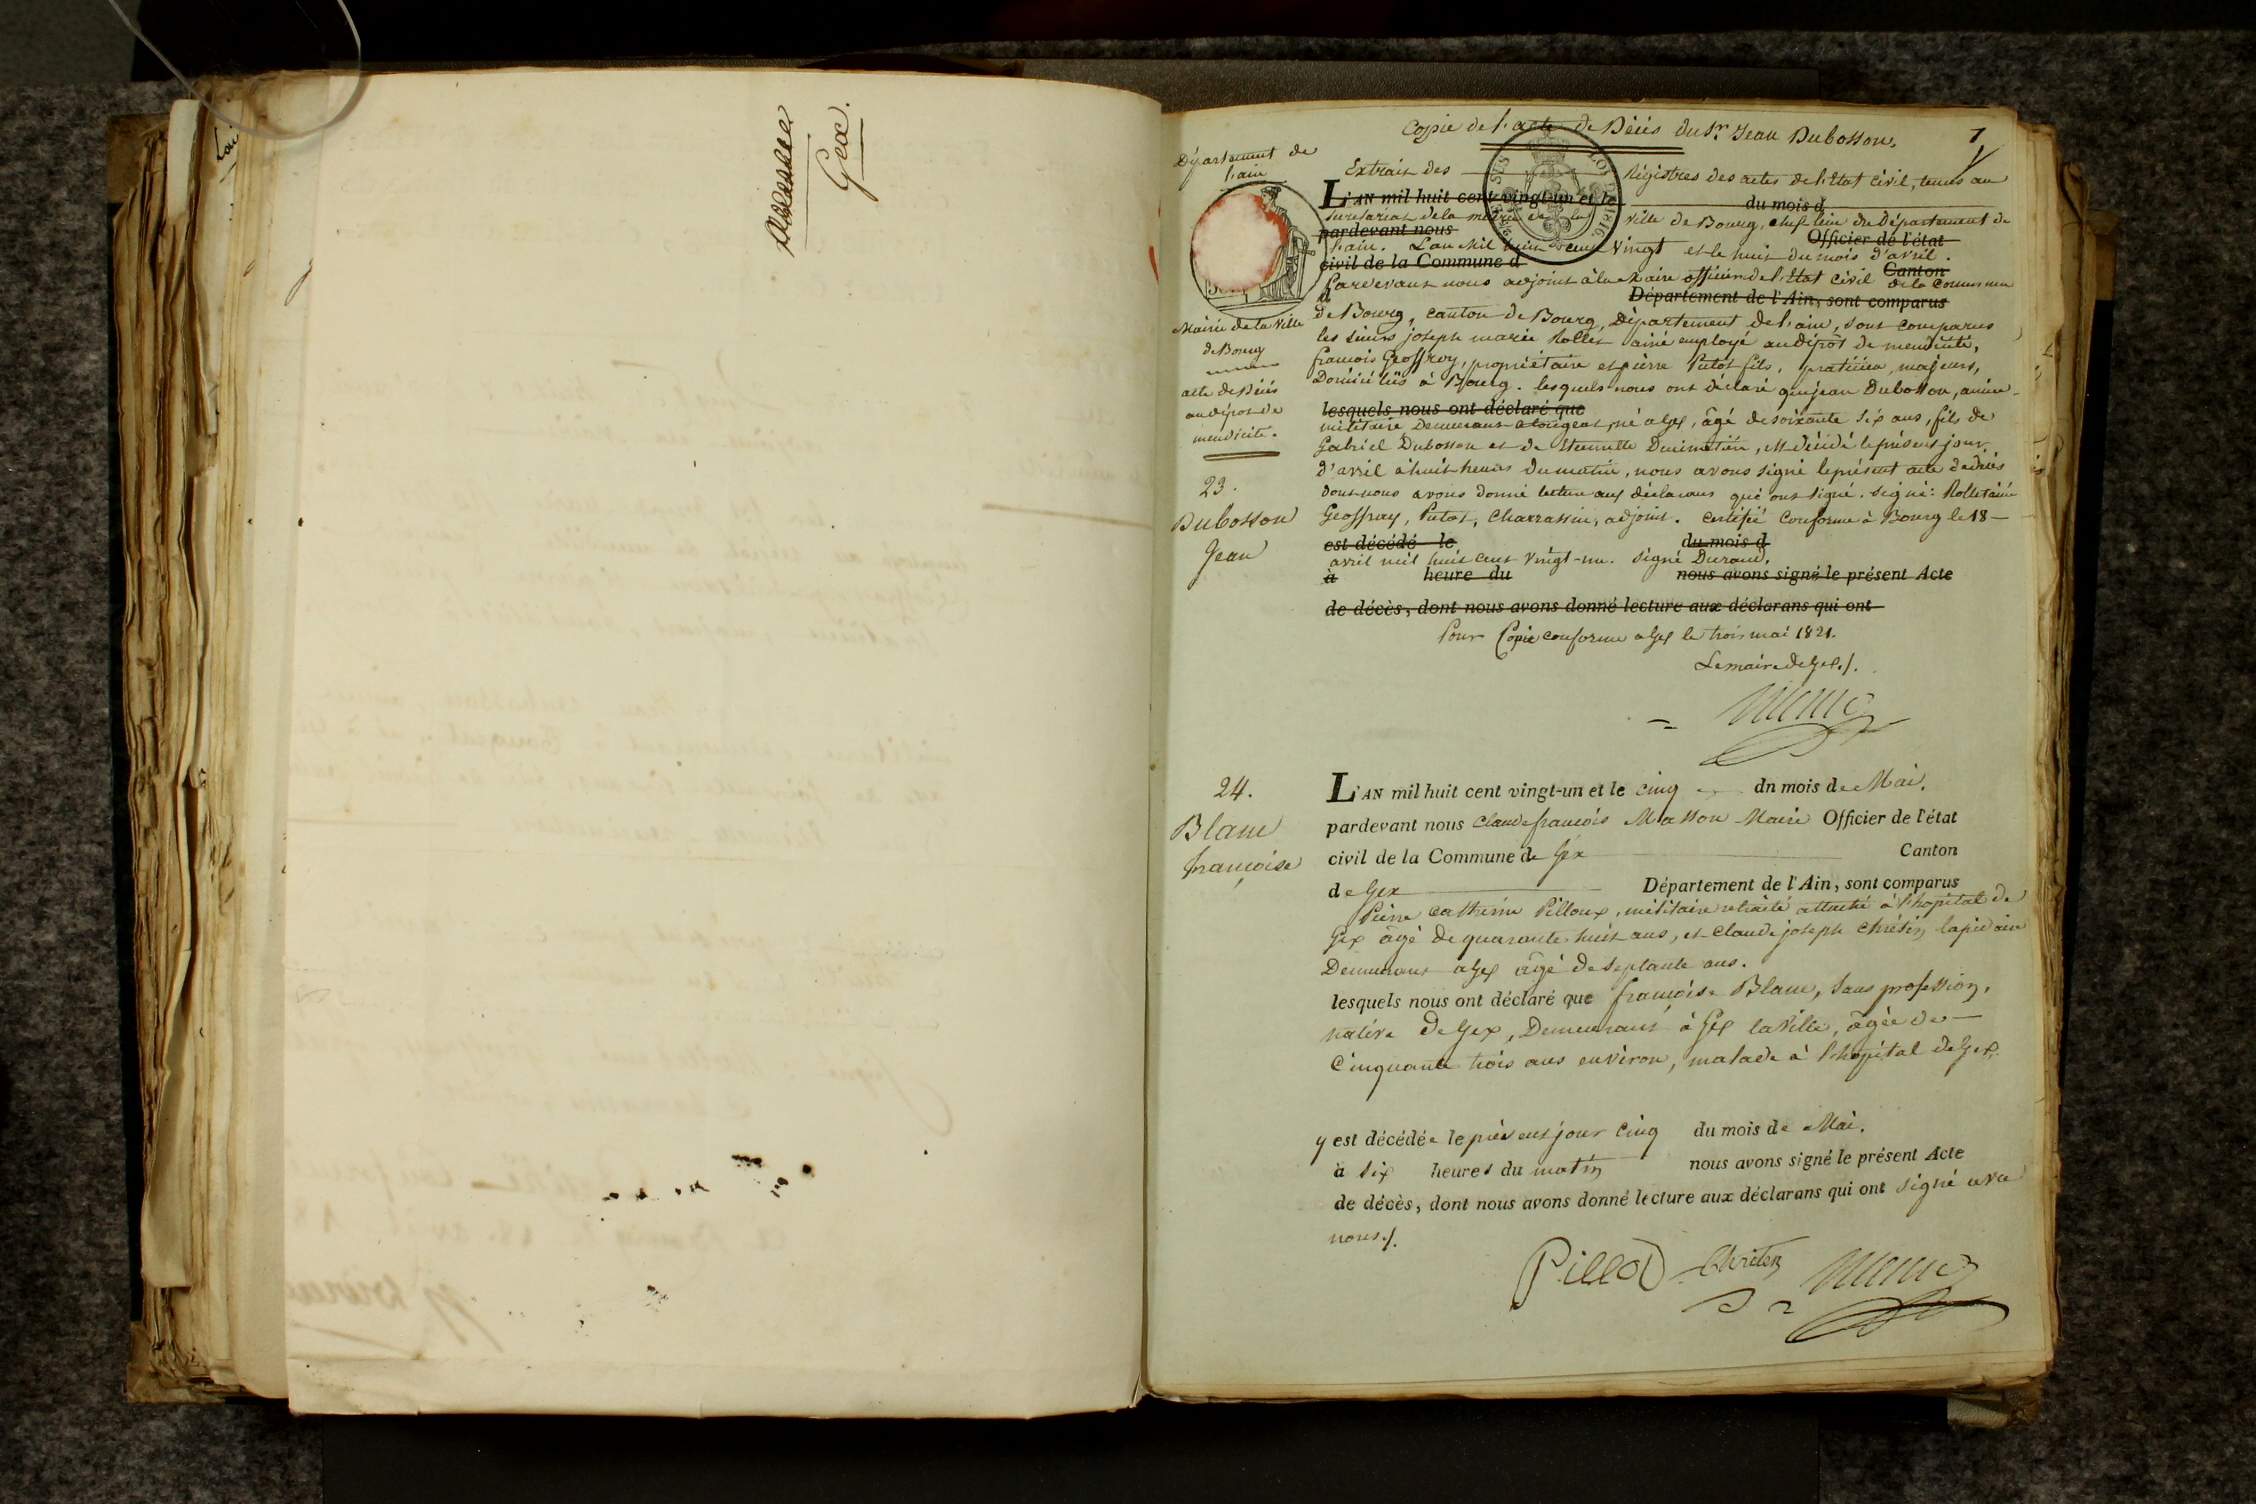 Gex.
Copie de l'acte de Décés du Sr. Jean Dubosson.
7
Département de
l'ain
Extrait des Régistres des actes de l'Etat civil, tenus au
L'AN mil huit cent vingt-un et le du mois d
Secretariat de la mairie de la ville de Bourg, chef lieu du Département de
pardevant nous Officier de l'état
l'ain. L'an Mil huit cent vingt et le huit du mois d'avril.
civil de la Commune d Canton
Pardevant nous adjoint à la Maire officier de l'Etat civil de la commune
d Département de l'Ain, sont comparus
de Bourg, canton de Bourg, Département de l'ain, sont comparus
les sieurs joseph marie Rollet ainé employé au dépot de mendicité,
françois Geoffroy, propriétaire et pierre Putot fils, praticien, majeurs,
Domiciliés à Bourg. lesquels nous ont déclaré que jean Dubosson, ancien
lesquels nous ont déclaré que
militaire Demeurant a tougeat, né a Gex, âgé de soixante six ans, fils de
Gabriel Dubosson et de Etiennette, est décédé le présent jour
d'avril à huit heures du matin, nous avons signé le présent acte de décés
dont nous avons donné lecture aux déclarans qui ont signé. Signé: Rollet ainé
Geoffray, Putot, Charrassin, adjoint. certifié conforme à Bourg le 18
est décédé le du mois d
avril mil huit cent vingt-un. signé Durand.
à heure du nous avons signé le présent Acte
de décès, dont nous avons donné lecture aux déclarans qui ont
Pour Copie conforme a Gex le trois mai 1821.
Le maire de Gex./.
Mairie de la Ville
de Bourg
acte de Décés
au dépot de
mendicité.
23.
Dubosson
Jean
24.
Blanc
françoise
L'AN mil huit cent vingt-un et le cinq dn mois de Mai.
pardevant nous Claude françois Masson Maire Officier de l'état
civil de la Commune de Gex Canton
de Gex Département de l'Ain, sont comparus
Pierre Catherin Pilloux, militaire retraité attaché à l'hopital de
Gex âgé de quarante huit ans, et Claude joseph Chrétin lapidaire
Demeurant a Gex âgé de septante ans.
lesquels nous ont déclaré que françoise Blanc, sans profession,
native de Gex, Demeurant à Gex la ville, âgée de
Cinquante trois ans environ, malade à l'hopital de Gex.
y est décédée le présent jour cinq du mois de Mai.
à six heures du matin nous avons signé le présent Acte
de décès, dont nous avons donné lecture aux déclarans qui ont signé avec
nous./.